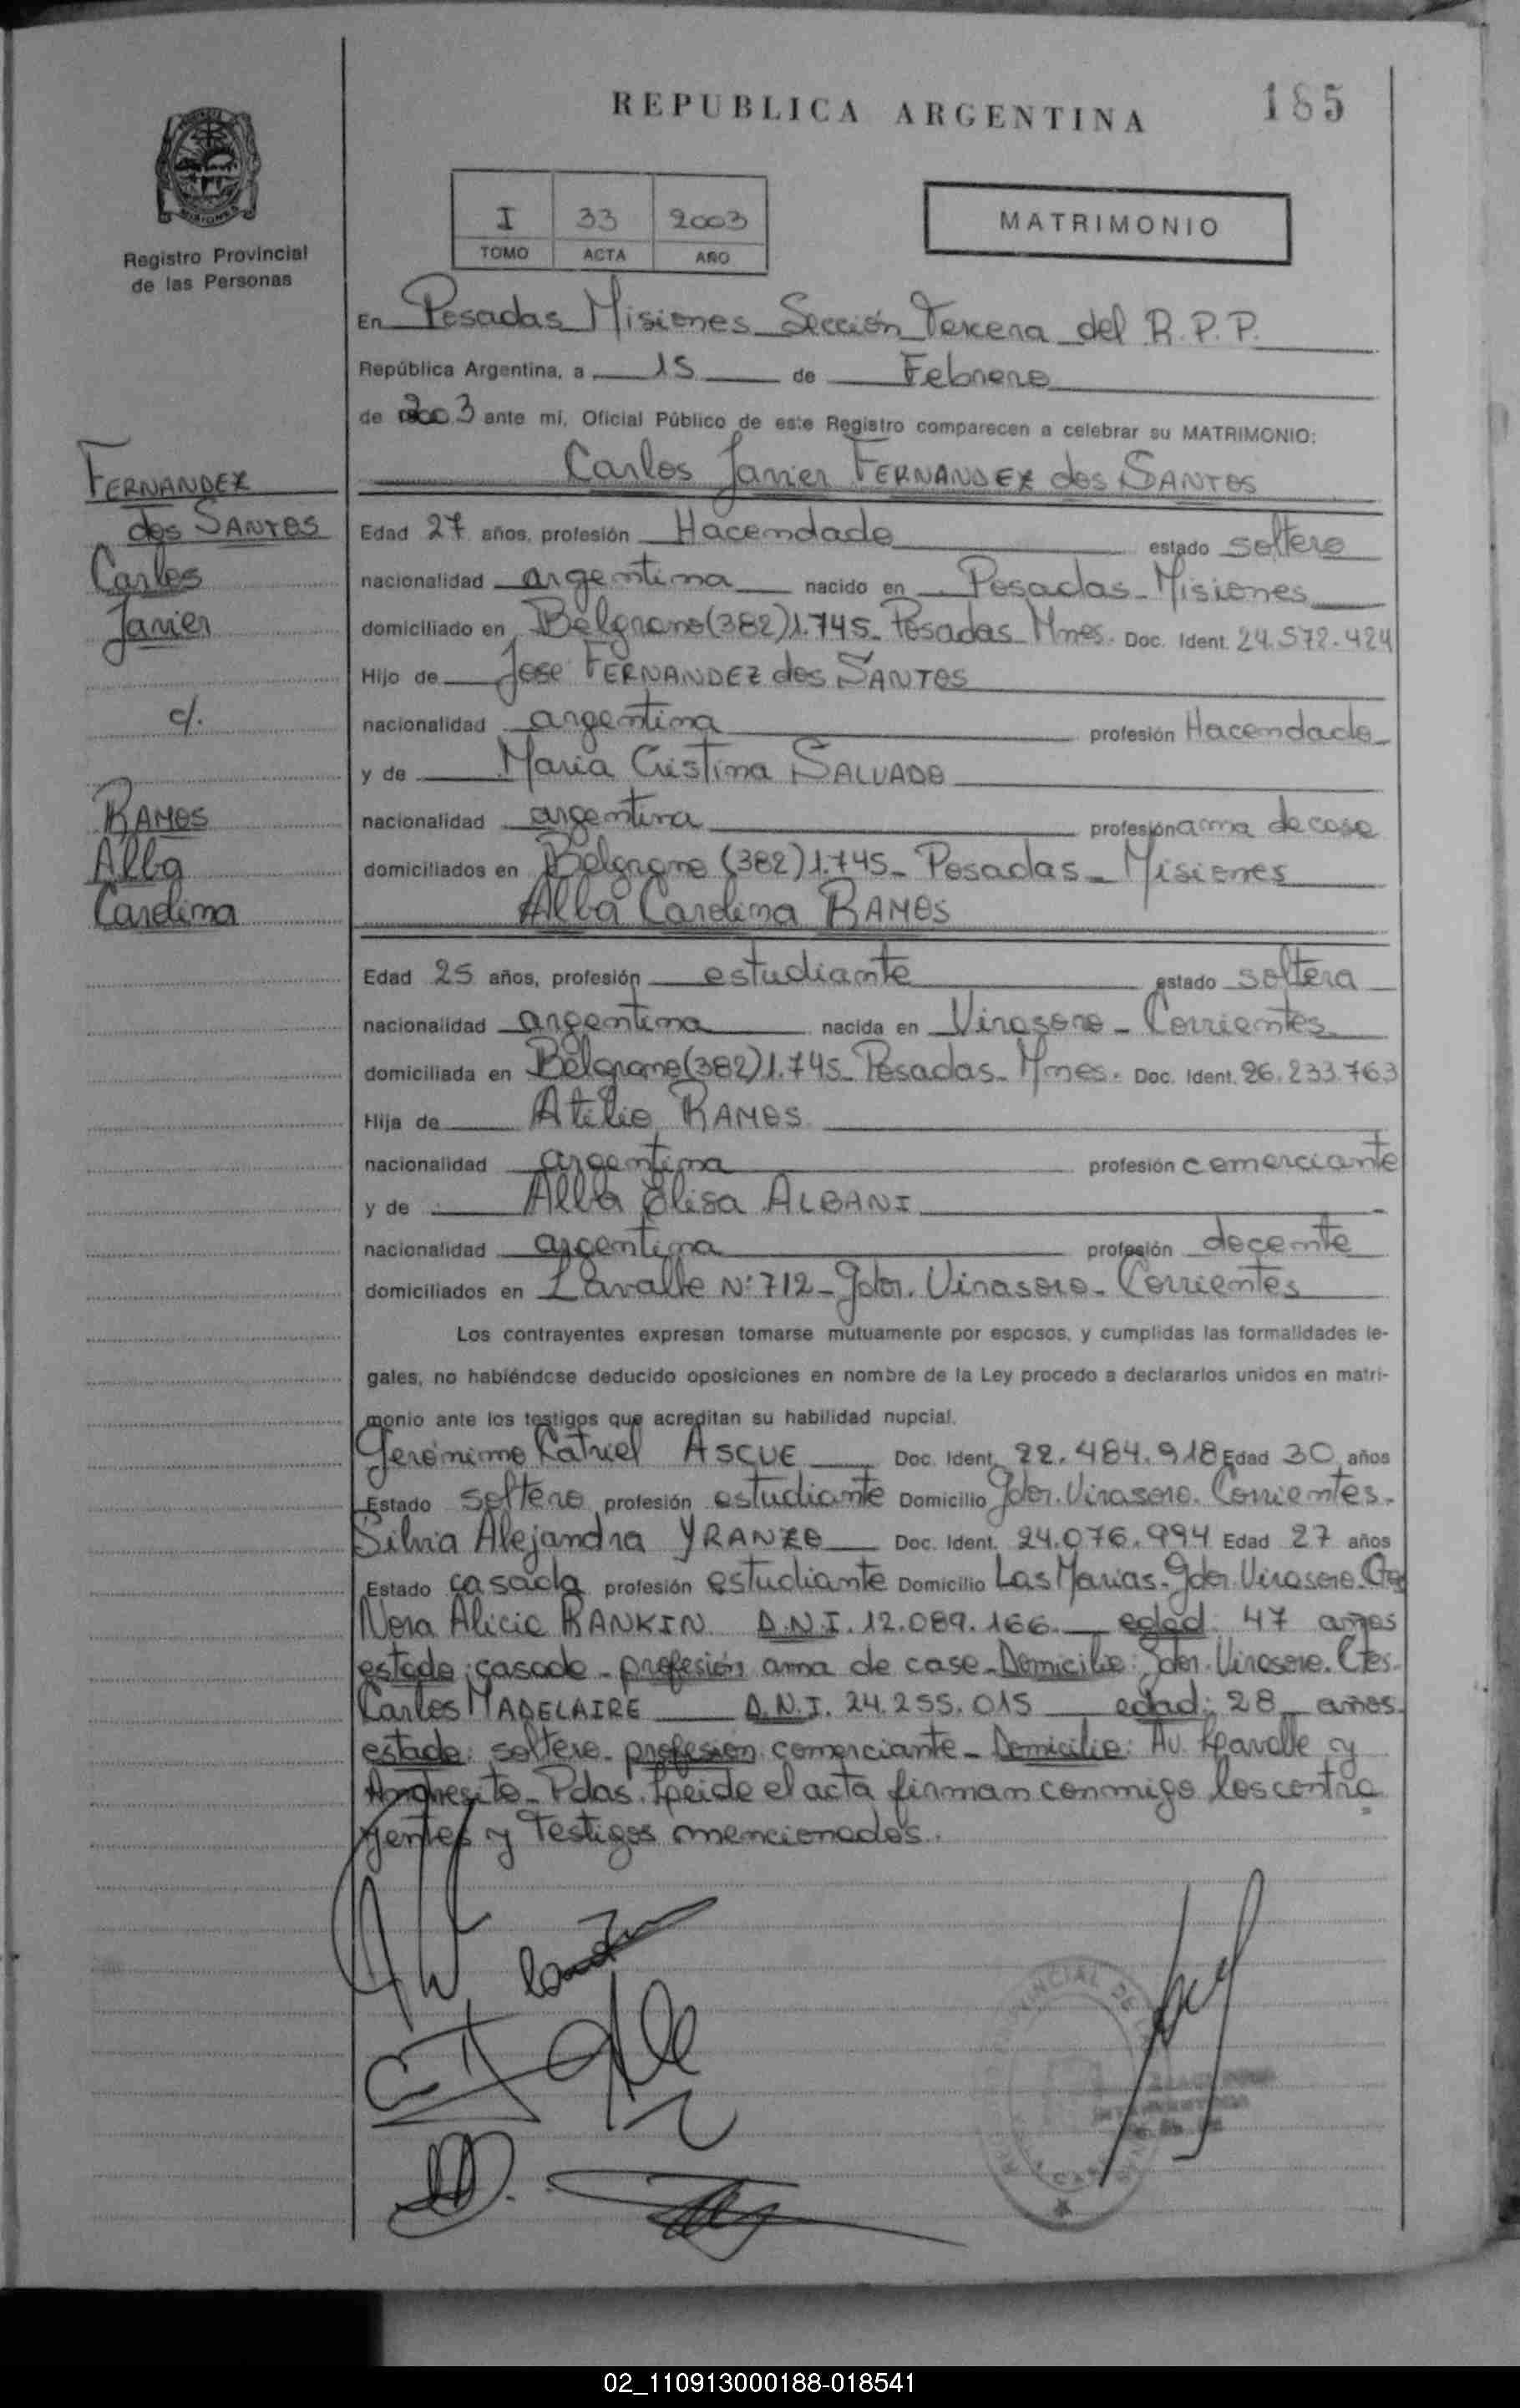 REPUBLICA ARGENTINA
185
MISIONES
Registro Provincial
de las Personas
I 33 2003
TOMO ACTA AÑO
MATRIMONIO
En Posadas Misiones Sección Tercera del R.P.P.
República Argentina, a 15 de Febrero
de 2003 ante mí, Oficial Público de este Registro comparecen a celebrar su MATRIMONIO:
Carlos Javier FERNANDEZ dos SANTOS
FERNANDEZ
dos SANTOS
Carlos
Javier
c/.
RAMOS
Alba
Carolina
Edad 27 años, profesión Hacendado estado soltero
nacionalidad argentina nacido en Posadas - Misiones
domiciliado en Belgrano (382) 1.745 - Posadas - Mnes. Doc. Ident. 24.572.424
Hijo de Jose FERNANDEZ dos SANTOS
nacionalidad argentina profesión Hacendado
y de Maria Cristina SALVADO
nacionalidad argentina profesión ama de casa
domiciliados en Belgrano (382) 1.745 - Posadas - Misiones
Alba Carolina RAMOS
Edad 25 años, profesión estudiante estado soltera
nacionalidad argentina nacida en Virasoro - Corrientes
domiciliada en Belgrano (382) 1.745 - Posadas - Mnes. Doc. Ident. 26.233.763
Hija de Atilio RAMOS
nacionalidad argentina profesión comerciante
y de Alba Elisa ALBANI
nacionalidad argentina profesión docente
domiciliados en Lavalle Nº 712 - Gdor. Virasoro - Corrientes
Los contrayentes expresan tomarse mutuamente por esposos, y cumplidas las formalidades le-
gales, no habiéndose deducido oposiciones en nombre de la Ley procedo a declararlos unidos en matri-
monio ante los testigos que acreditan su habilidad nupcial.
Gerónimo Catriel ASCUE Doc. Ident. 22.484.918 Edad 30 años
Estado soltero profesión estudiante Domicilio Gdor. Virasoro. Corrientes.
Silvia Alejandra YRANZO Doc. Ident. 24.076.994 Edad 27 años
Estado casada profesión estudiante Domicilio Las Marias - Gdor. Virasoro. Ctes
Nora Alicia RANKIN D.N.I. 12.089.166. edad: 47 años
estado: casada - profesión ama de casa - Domicilio: Gdor. Virasoro. Ctes.
Carlos MADELAIRE D.N.I. 24.255.015 edad: 28 años.
estado: soltero - profesion comerciante - Domicilio: Av. Lavalle y
Pdas. Leida el acta firman conmigo los contra
yentes y Testigos mencionados.
02_110913000188-018541